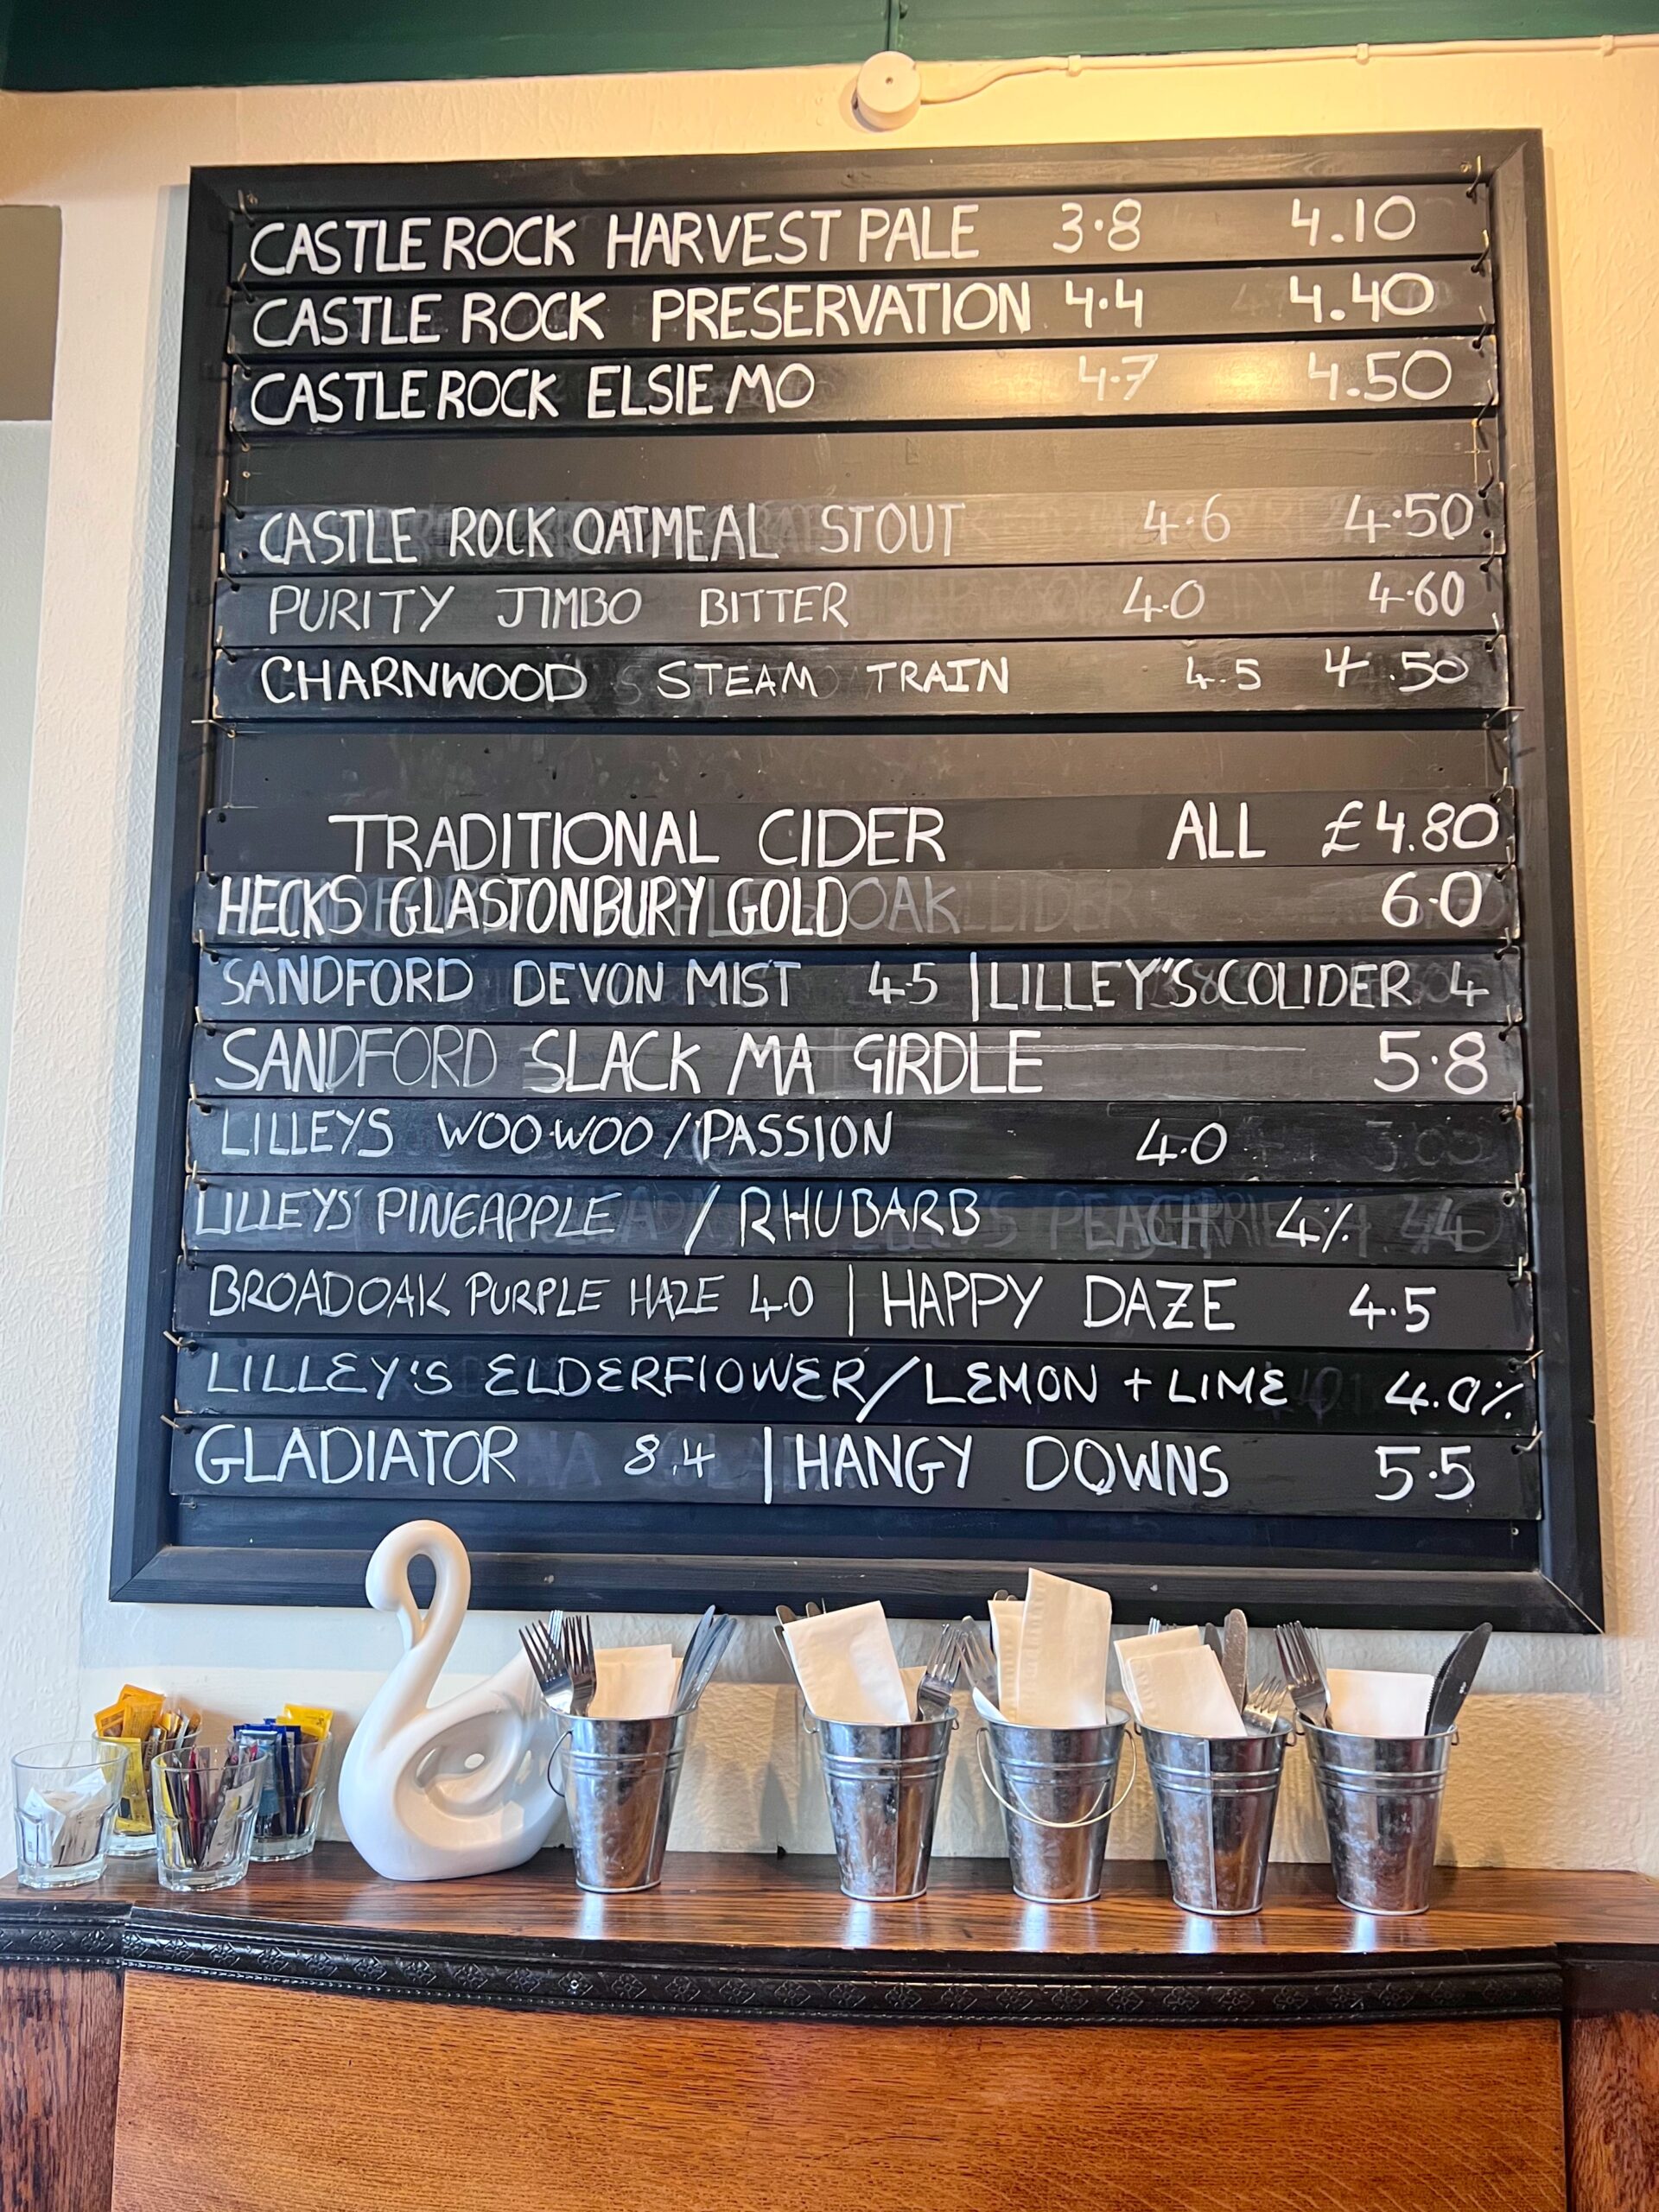 CASTLE ROCK HARVEST PALE 3.8 4.10
CASTLE ROCK PRESERVATION 4.4 4.40
CASTLE ROCK ELSIE MO 4.7 4.50
CASTLE ROCK OATMEAL STOUT 4.6 4.50
PURITY JIMBO BITTER 4.0 4.60
CHARNWOOD STEAM TRAIN 4.5 4.50
TRADITIONAL CIDER ALL £4.80
HECKS GLASTONBURY GOLD 6.0
SANDFORD DEVON MIST 4.5 | LILLEY'S COLIDER 4
SANDFORD SLACK MA GIRDLE 5.8
LILLEYS WOOWOO / PASSION 4.0
LILLEYS PINEAPPLE / RHUBARB 4%
BROADOAK PURPLE HAZE 4.0 | HAPPY DAZE 4.5
LILLEY'S ELDERFLOWER / LEMON + LIME 4.0%
GLADIATOR 8.4 | HANGY DOWNS 5.5